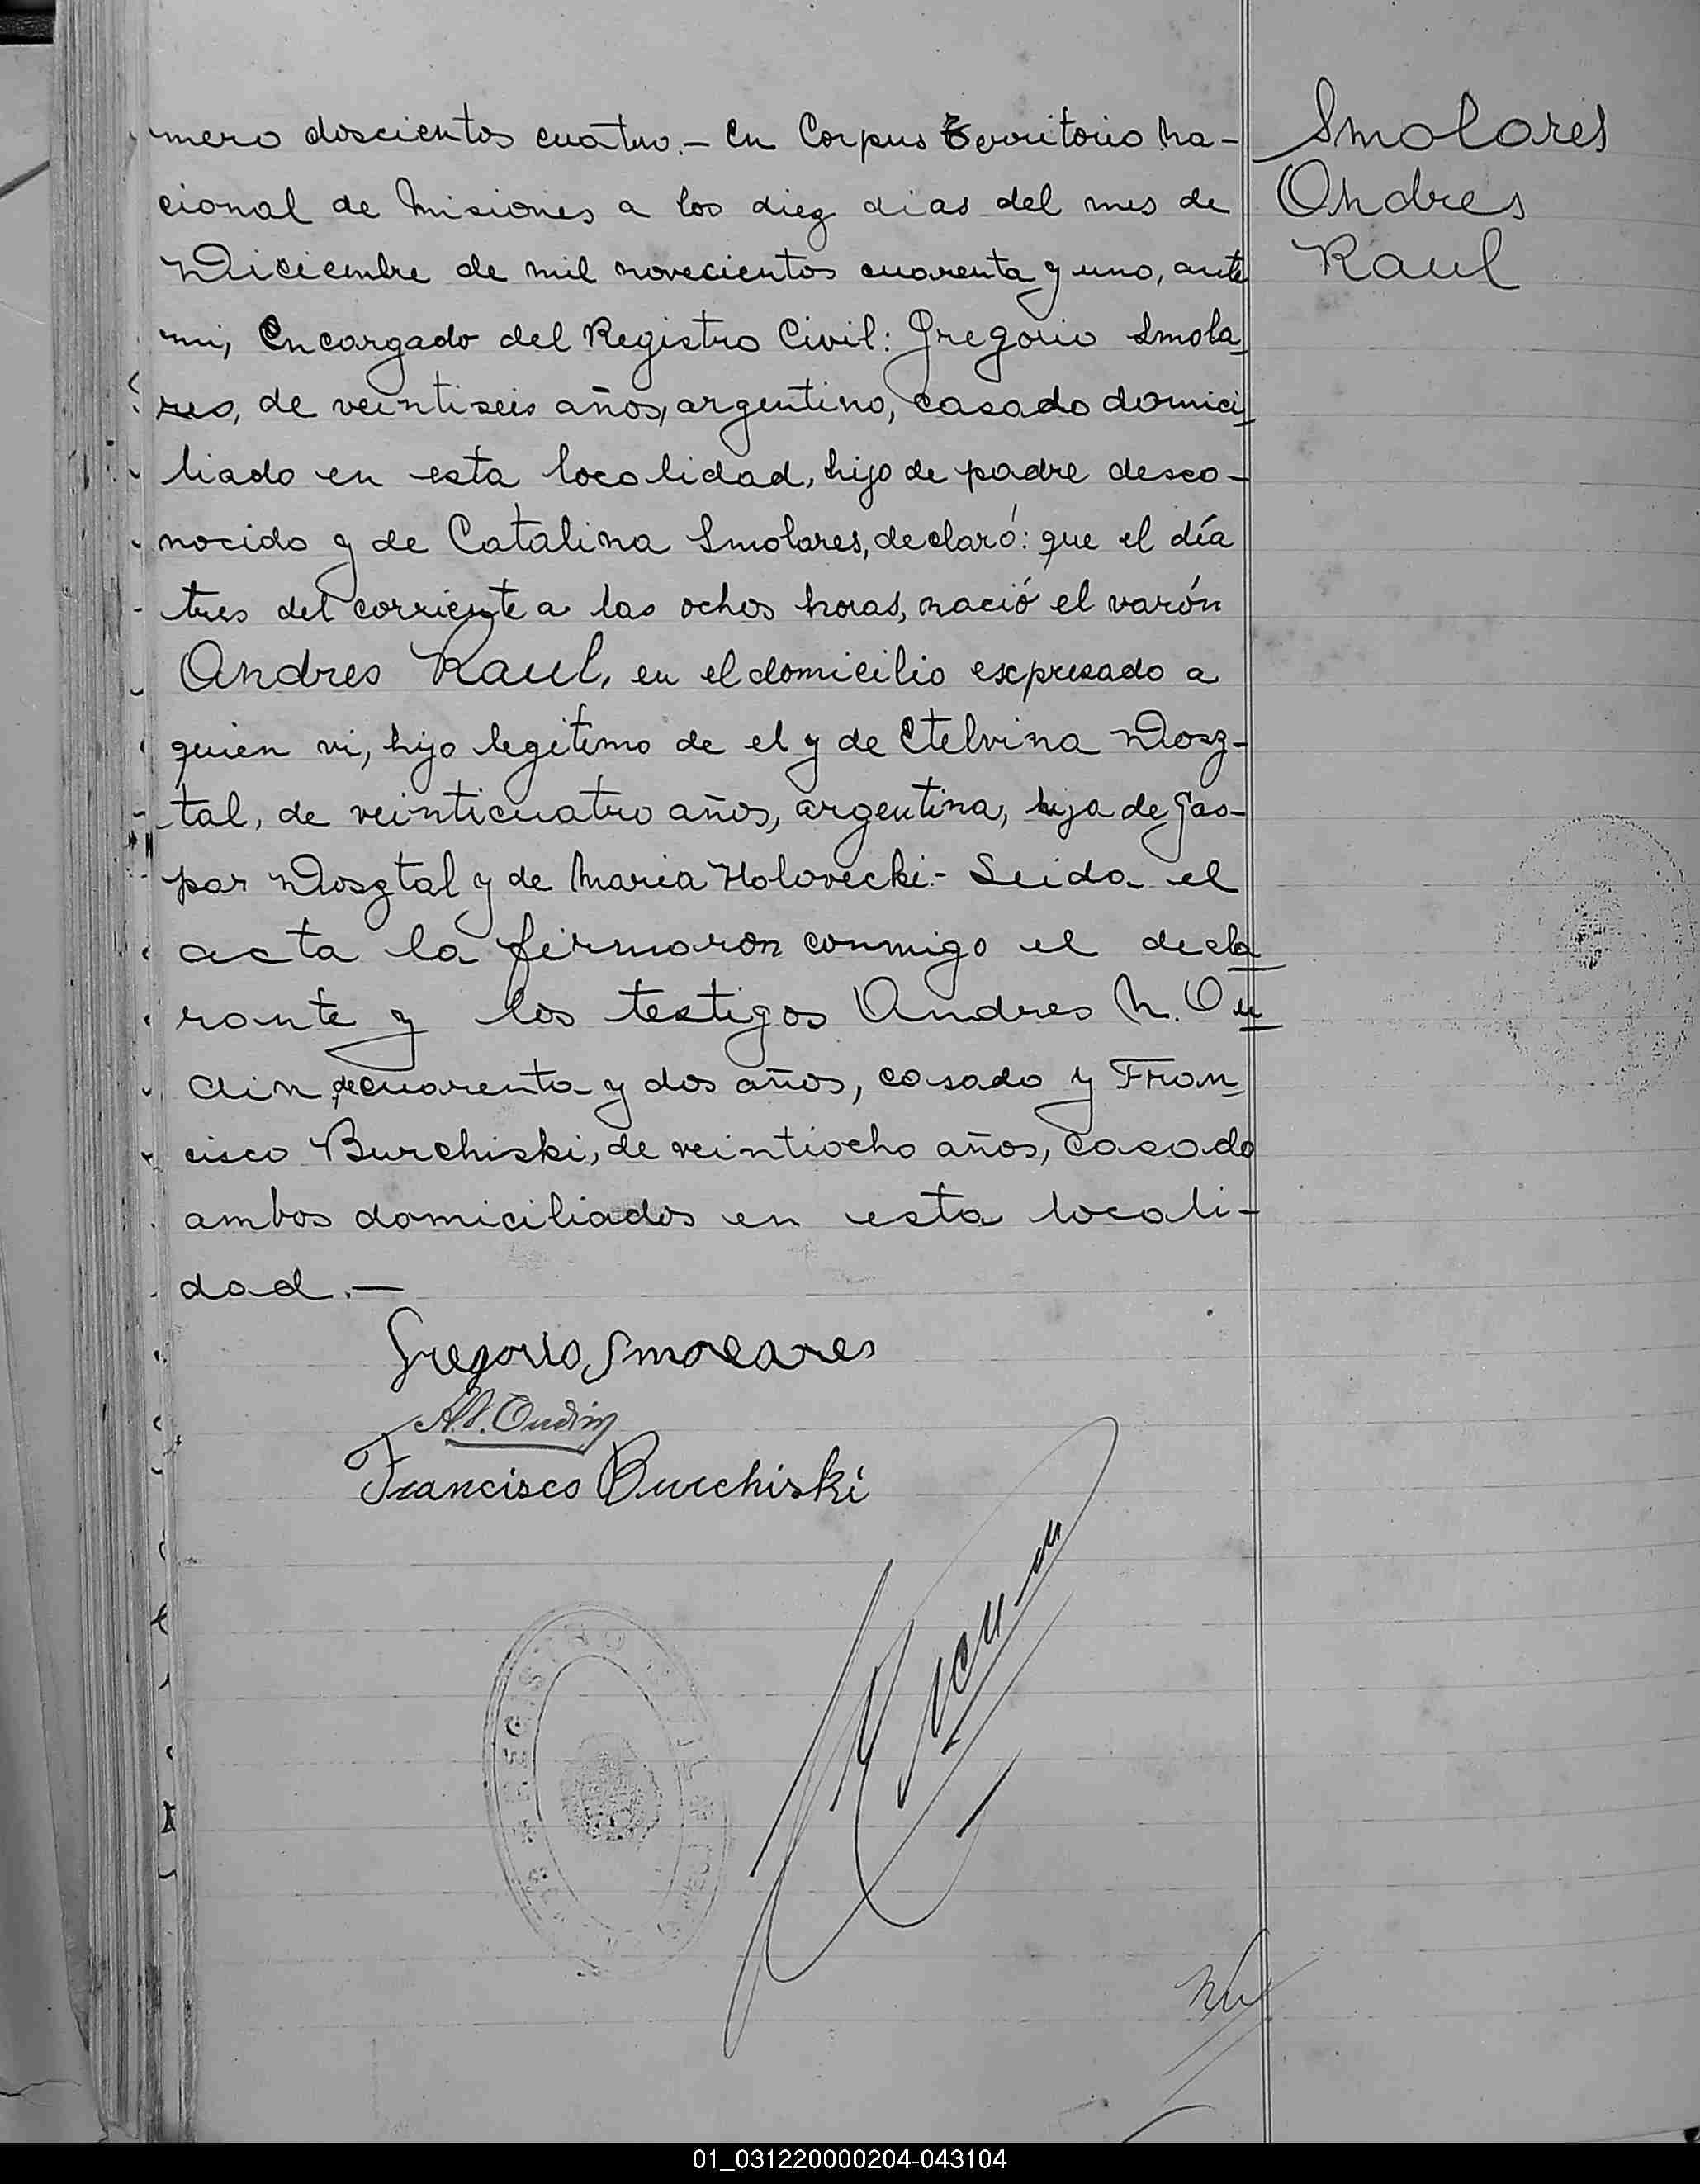 mero doscientos cuatro.- En Corpus Territorio Na-
cional de Misiones a los diez dias del mes de
Diciembre de mil novecientos cuarenta y uno, ante
mi, Encargado del Registro Civil: Gregorio Smola
res, de veintiseis años, argentino, casado domici
liado en esta localidad, hijo de padre desco-
nocido y de Catalina Smolares, declaró: que el día
tres del corriente a las ochos horas, nació el varón
Andres Raul, en el domicilio expresado a
quien vi, hijo legitimo de el y de Etelvina Dosz-
tal, de veinticuatro años, argentina, hija de Gas-
par Dosztal y de Maria Holovecki.- Leida el
acta la firmaron conmigo el decla
rante y los testigos Andres N. Ou
din de cuarenta y dos años, casado y Fran
cisco Burchiski, de veintiocho años, casado
ambos domiciliados en esta locali-
dad.-
Smolares
Andres
Raul
Gregorio Smolares
Oudin
Francisco Burchiski
REGISTRO CIVIL
01_031220000204-043104